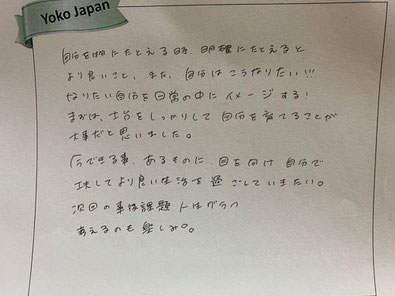 Yoko Japan
自分を物にたとえる時、明確にたとえると
より良いこと、また、自分はこうなりたい!!!
なりたい自分を日常の中にイメージする!
まずは、土台をしっかりして自分を育てることが
大事だと思いました。
今できる事、あるものに、目を向け自分で
工夫してより良い生活を過ごしていきたい。
次回の事後課題
考えるのも楽しみ。